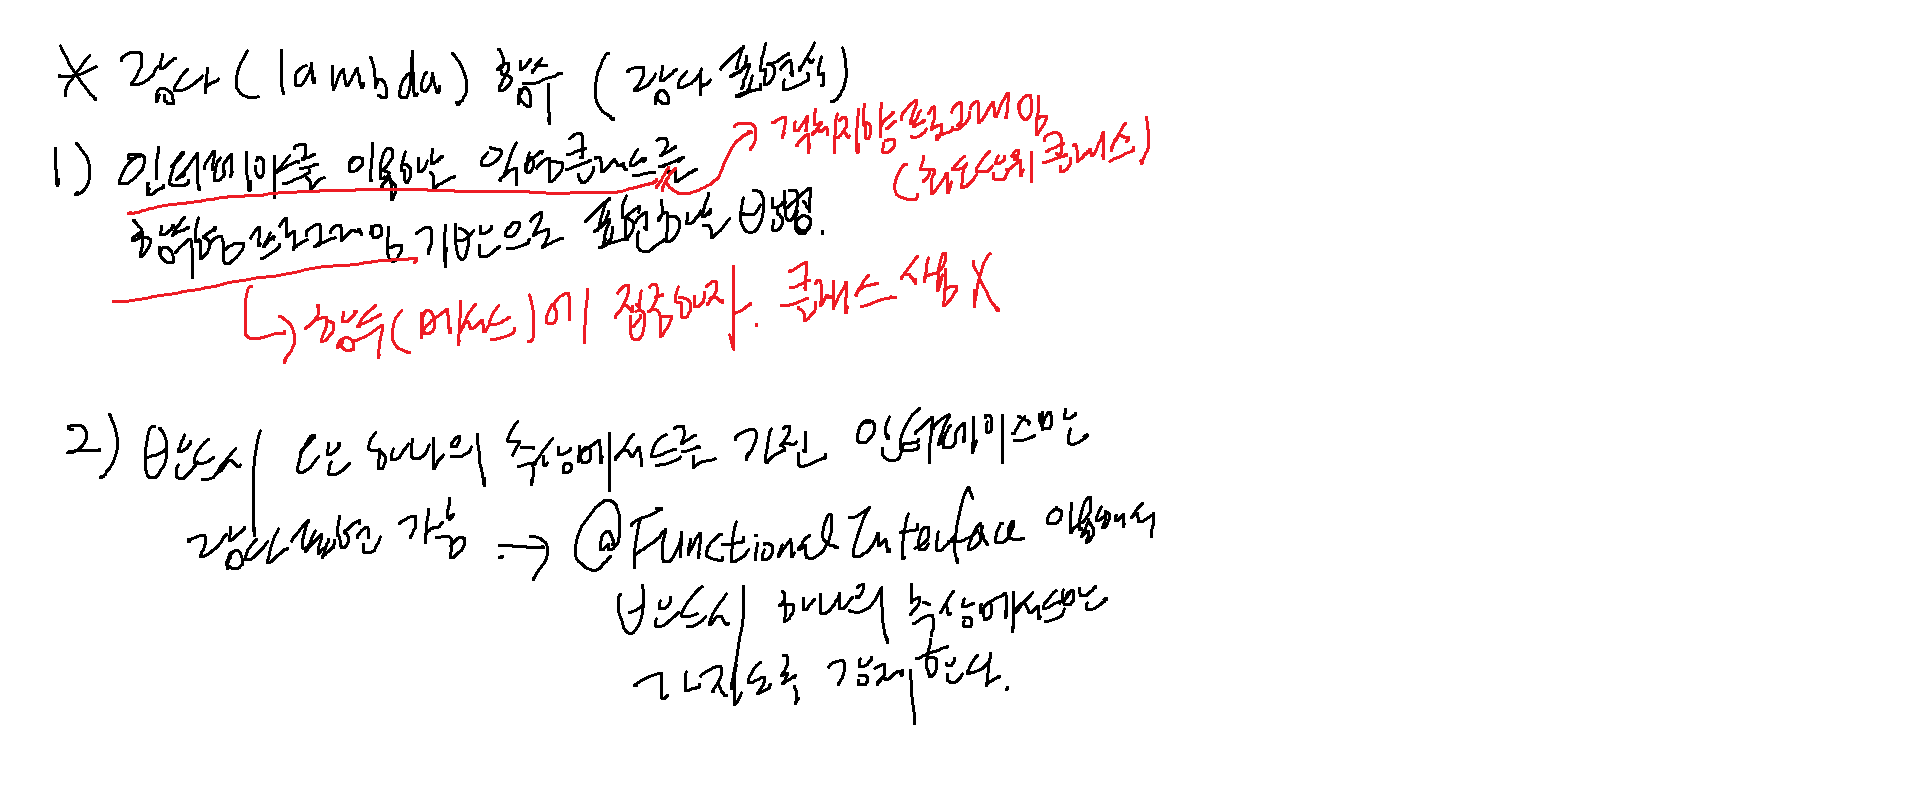 * 람다(lambda) 함수 (람다 표현식)
1) 인터페이스를 이용한 익명클래스를
→ 객체지향프로그래밍
(최소단위 클래스)
함수형프로그래밍 기반으로 표현하는 방법.
↳ 함수(메서드)에 집중하자. 클래스 사용 X
2) 반드시 단 하나의 추상메서드를 가진 인터페이스만
람다 표현 가능 → @FunctionalInterface 이용해서
반드시 하나의 추상메서드만
가지도록 강제한다.